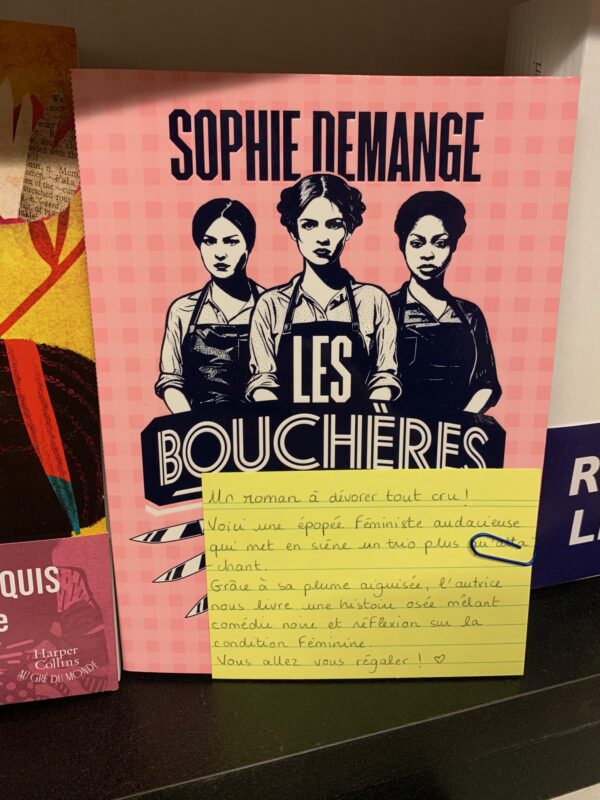 SOPHIE DEMANGE
LES
BOUCHÈRES
Un roman à dévorer tout cru !
Voici une épopée féministe audacieuse
qui met en scène un trio plus qu'atta
-chant.
Grâce à sa plume aiguisée, l'autrice
nous livre une histoire osée mêlant
comédie noire et réflexion sur la
condition féminine.
Vous allez vous régaler ! ♡
QUIS
e
Harper
Collins
AU GRÉ DU MONDE
R
L